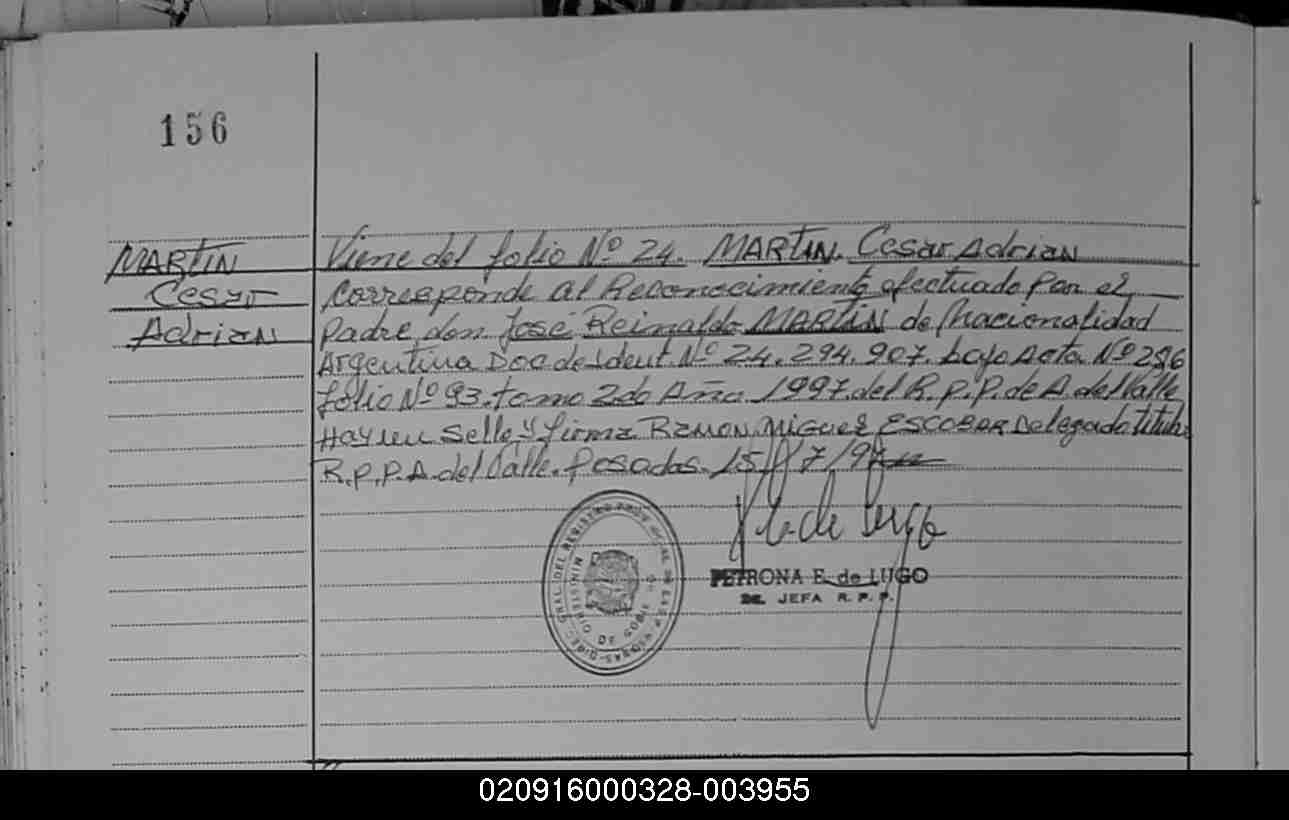 156
MARTIN
Cesar
Adrian
Viene del folio Nº 24. MARTIN. Cesar Adrian
Corresponde al Reconocimiento efectuado por el
Padre don José Reinaldo MARTIN de Nacionalidad
Argentina Doc de Ident. Nº 24.294.907. bajo Acta Nº 286
folio Nº 93. tomo 2do Año 1997. del R.P.P. de A. del Valle
Hay un Sello y firma Ramon Miguel ESCOBAR Delegado titular
R.P.P.A. del Valle. Posadas. 15/7/97
PETRONA E. de LUGO
JEFA R. P. P.
020916000328-003955